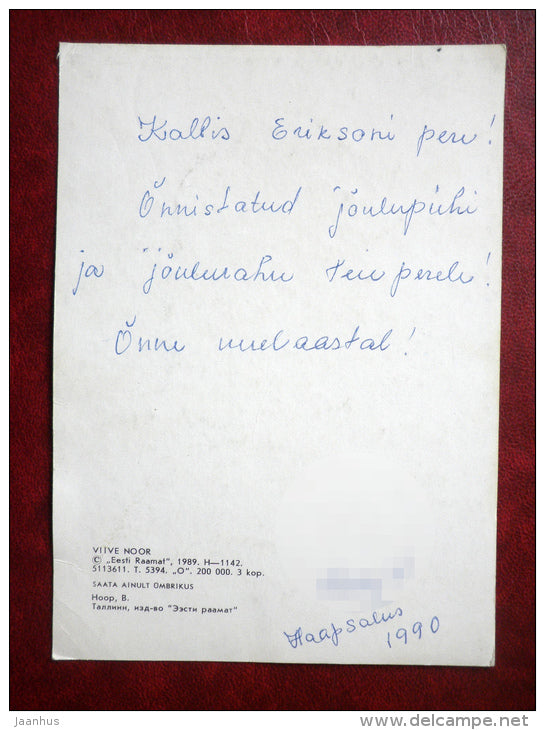 Kallis Eriksoni pere!
Õnnistatud jõulupühi
ja jõulurahu Teie perele!
Õnne uuel aastal!
VIIVE NOOR
© „Eesti Raamat", 1989. H—1142.
5113611. T. 5394. „O". 200 000. 3 kop.
SAATA AINULT ÜMBRIKUS
Ноор, В.
Таллинн, изд-во "Ээсти раамат"
Haapsalus
1990
jaanhus
www.delcampe.net